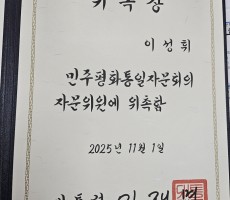 위촉장
이성휘
민주평화통일자문회의
자문위원에 위촉함
2025년 11월 1일
대통령 이재명